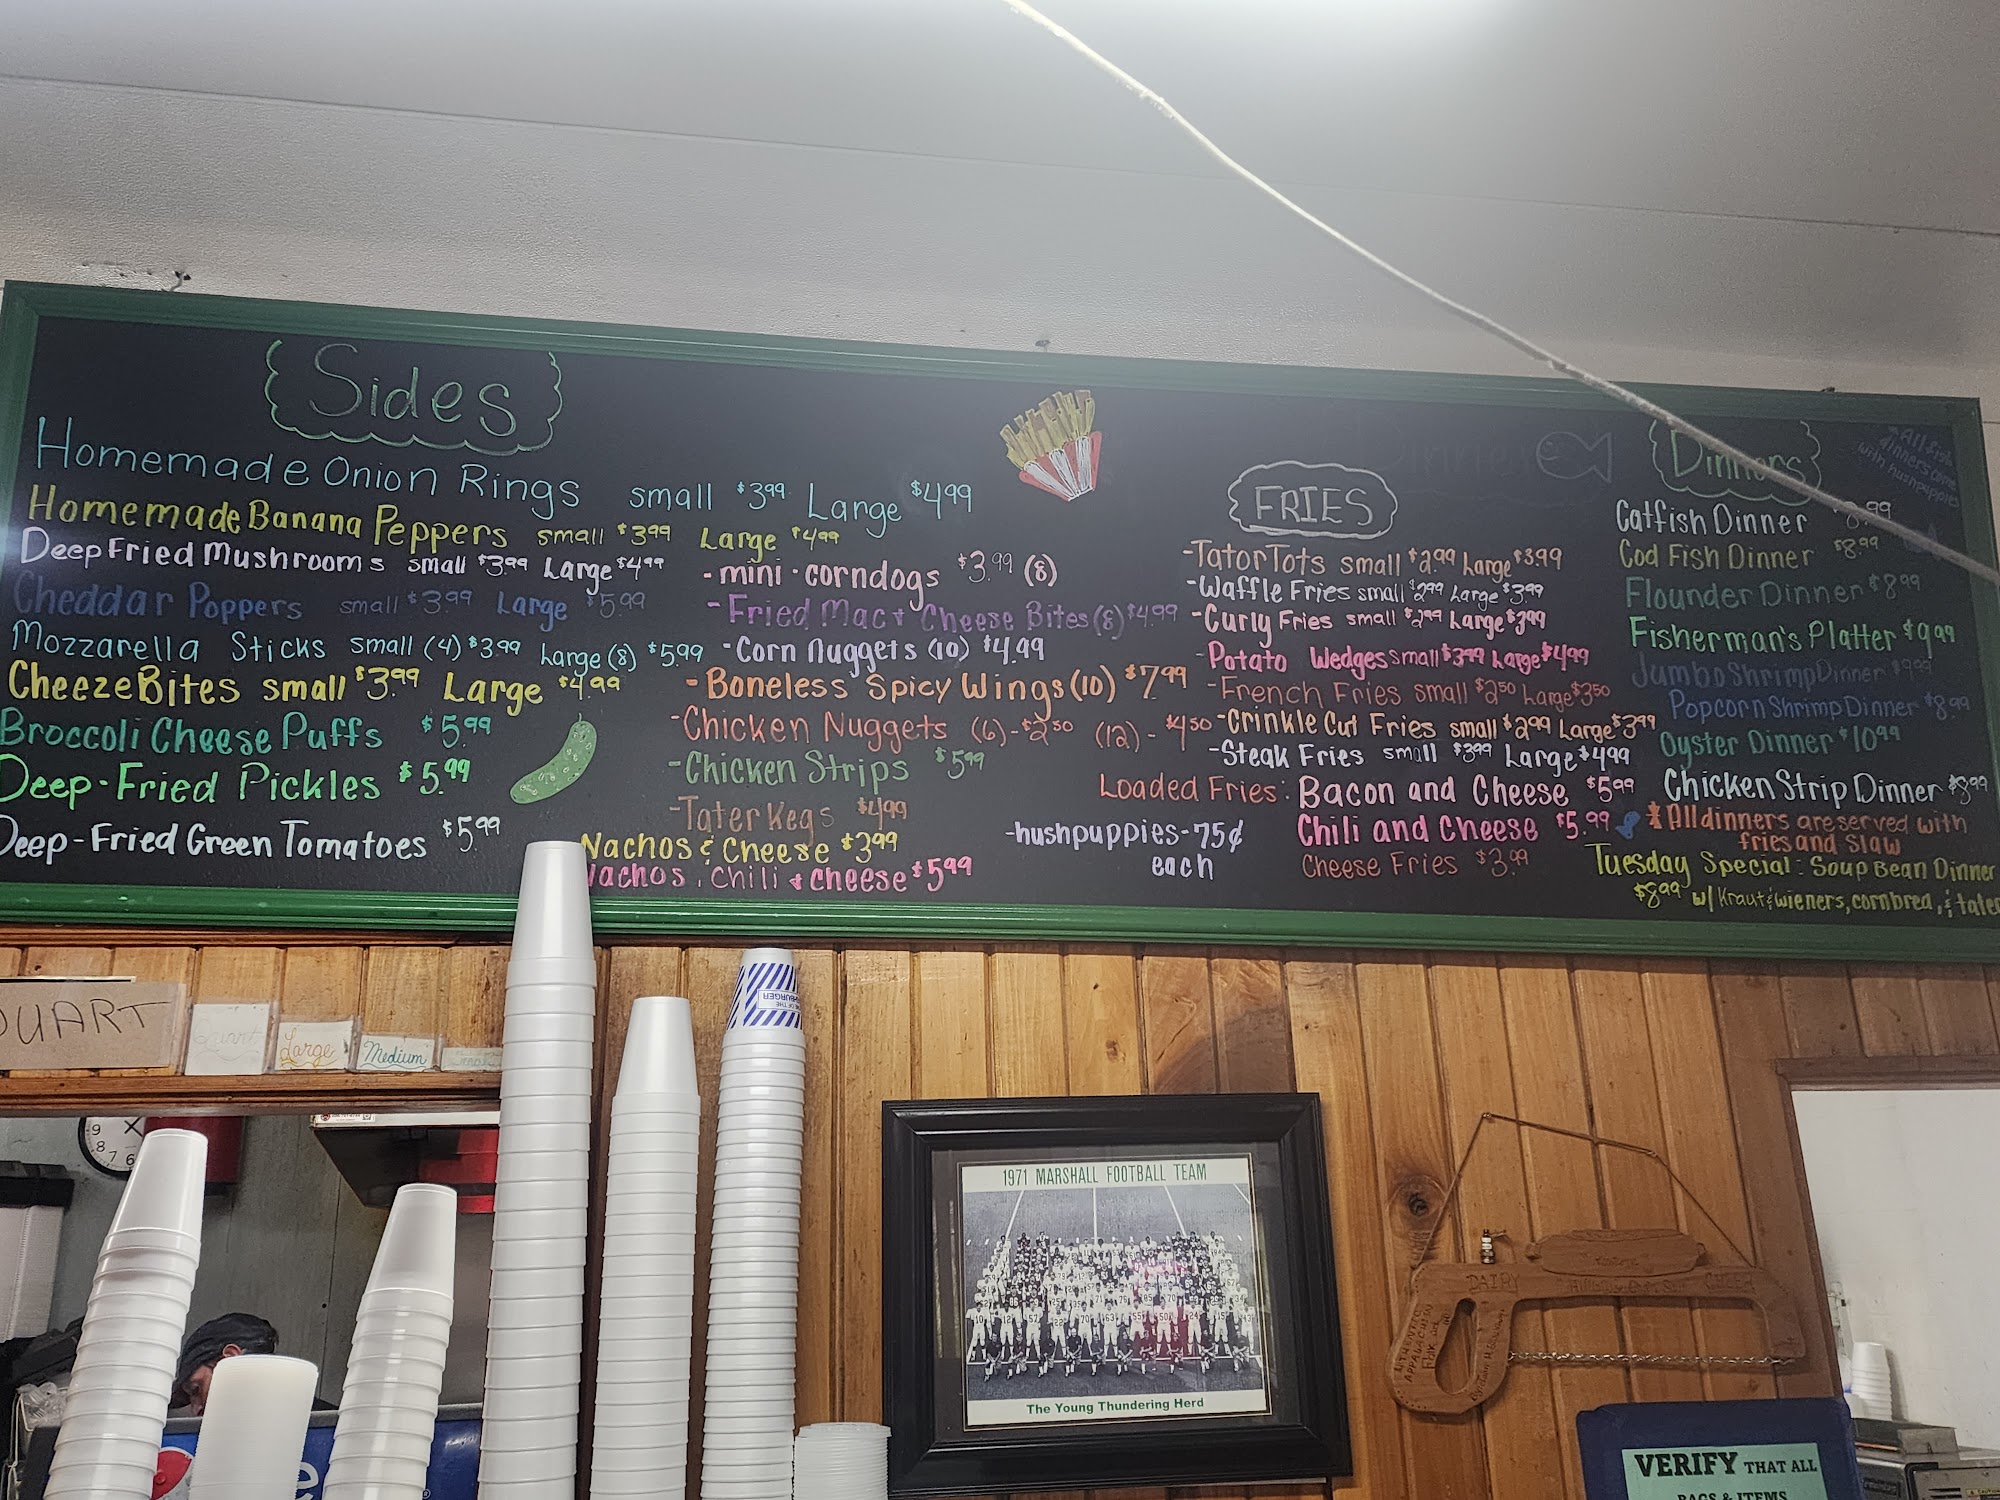 Sides
Homemade Onion Rings small $3.99 Large $4.99
Homemade Banana Peppers small $3.99 Large $4.99
Deep Fried Mushrooms small $3.99 Large $4.99
Cheddar Poppers small $3.99 Large $5.99
Mozzarella Sticks small (4) $3.99 Large (8) $5.99
Cheeze Bites small $3.99 Large $4.99
Broccoli Cheese Puffs $5.99
Deep-Fried Pickles $5.99
Deep-Fried Green Tomatoes $5.99
-mini-corndogs $3.99 (8)
-Fried Mac + Cheese Bites (8) $4.99
-Corn Nuggets (10) $4.99
-Boneless Spicy Wings (10) $7.99
-Chicken Nuggets (6)-$2.50 (12)-$4.50
-Chicken Strips $5.99
-Tater Kegs $4.99
Nachos & Cheese $3.99
Nachos, Chili & Cheese $5.99
-hushpuppies-75¢
each
FRIES
-Tator Tots small $2.99 Large $3.99
-Waffle Fries small $2.99 Large $3.99
-Curly Fries small $2.99 Large $3.99
-Potato Wedges small $3.99 Large $4.99
-French Fries small $2.50 Large $3.50
-Crinkle Cut Fries small $2.99 Large $3.99
-Steak Fries small $3.99 Large $4.99
Loaded Fries: Bacon and Cheese $5.99
Chili and Cheese $5.99
Cheese Fries $3.99
Dinners
*All fish
dinners come
with hushpuppies
Catfish Dinner
Cod Fish Dinner $8.99
Flounder Dinner $8.99
Fisherman's Platter $9.99
Jumbo Shrimp Dinner $9.99
Popcorn Shrimp Dinner $8.99
Oyster Dinner $10.99
Chicken Strip Dinner $8.99
*All dinners are served with
fries and slaw
Tuesday Special: Soup Bean Dinner
$8.99 w/ Kraut & wieners, cornbread, & tater
QUART
Quart
Large
Medium
HAMBURGER
9 8 7 6
1971 MARSHALL FOOTBALL TEAM
The Young Thundering Herd
DAIRY
VERIFY THAT ALL
BAGS & ITEMS